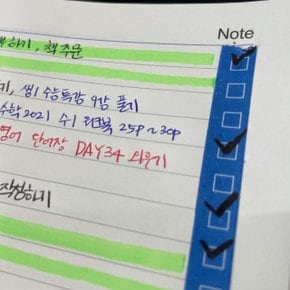 Note
하기, 책 주문
기, 생1 수능특강 9강 풀기
수학 2021 수1 워크북 25p~30p
영어 단어장 DAY34 외우기
작성하기